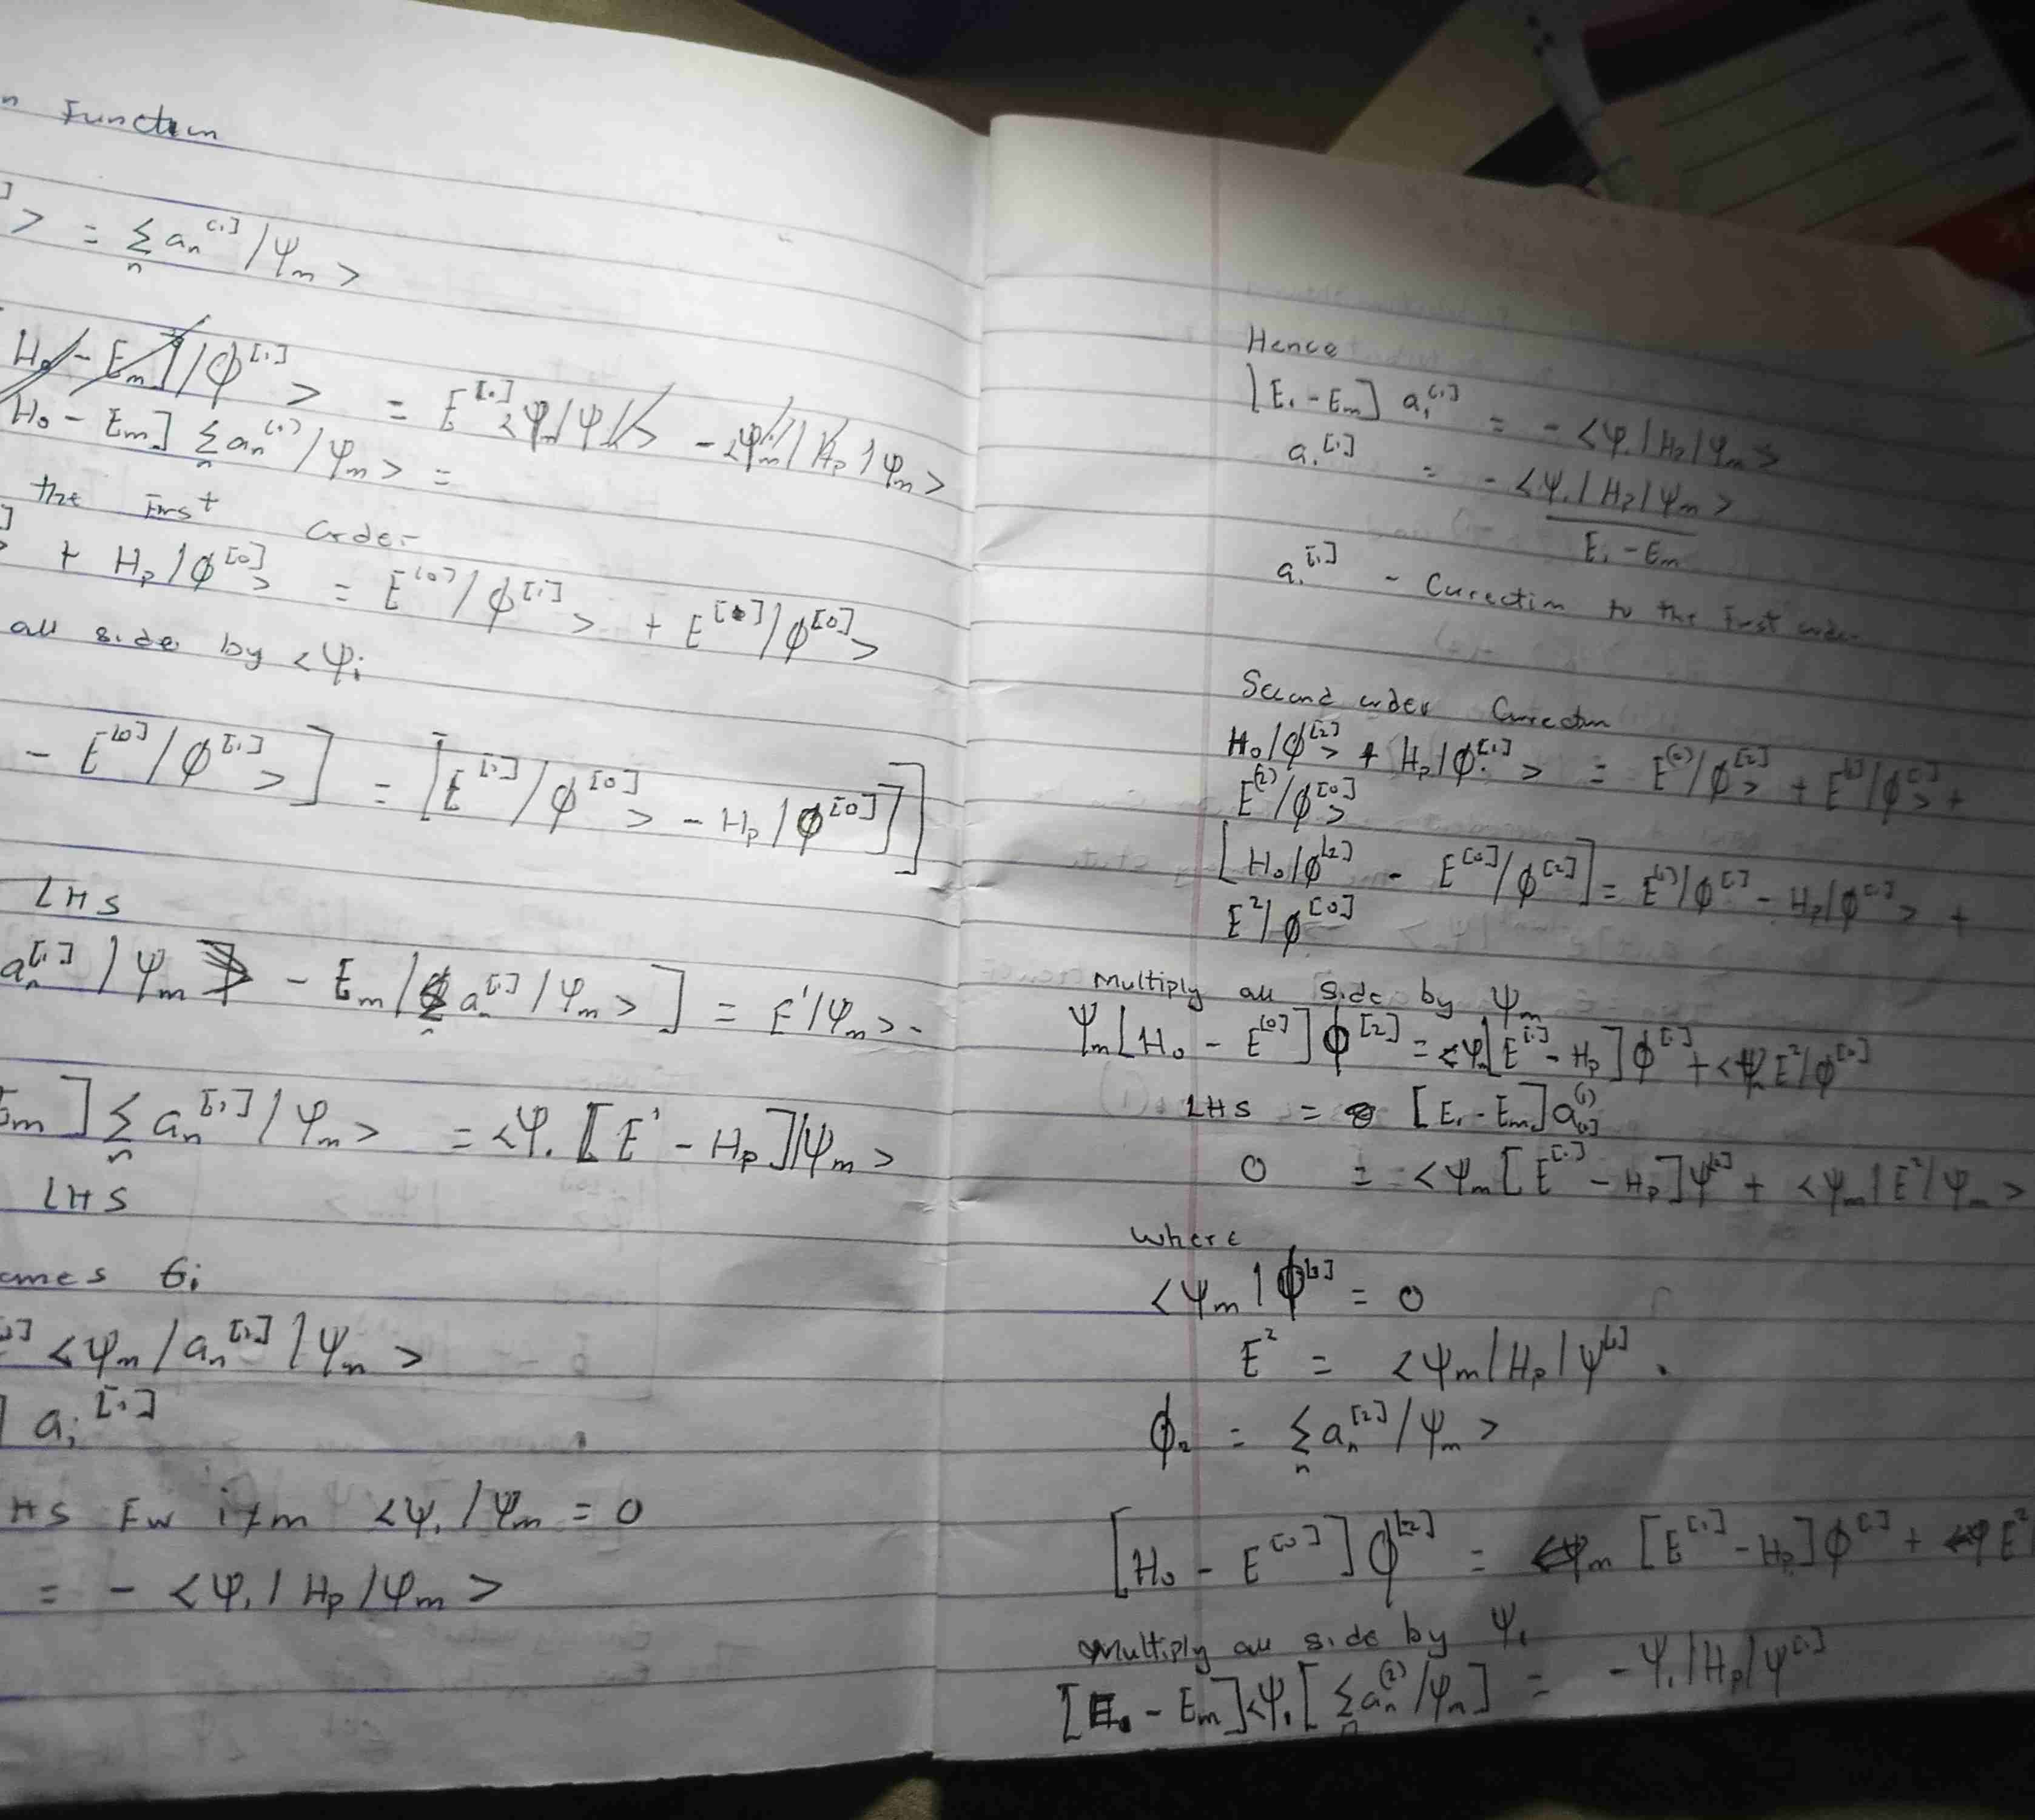 n Function
> = Σ_n a_n^(1) /Ψ_m >
H_0 - E_m ] /Φ^[1] > = E^[1] <Ψ_m/Ψ/> - <Ψ_m/ H_p /Ψ_m >
H_0 - E_m ] Σ_n a_n^(1) /Ψ_m > =
the First order
> + H_p /Φ^[0] > = E^(0) /Φ^[1] > + E^[1] /Φ^[0] >
all side by <Ψ_i
- E^[0] /Φ^[1] > ] = [ E^[1] /Φ^[0] > - H_p /Φ^[0] ] ]
LHS
a_n^[1] /Ψ_m - E_m / Σ_n a_n^[1] /Ψ_m > ] = E' /Ψ_m > -
E_m ] Σ_n a_n^[1] /Ψ_m > = <Ψ_i [ E' - H_p ] /Ψ_m >
LHS
omes Ei
<Ψ_m / a_n^[1] /Ψ_m >
] a_i^[1]
HS For i≠m <Ψ_i /Ψ_m = 0
= - <Ψ_i / H_p /Ψ_m >
Hence
[E_i - E_m] a_i^[1] = - <Ψ_i / H_p /Ψ_m >
a_i^[1] = - <Ψ_i / H_p /Ψ_m > / E_i - E_m
a_i^[1] - Curection to the first order
Second order Curection
H_0 /Φ^[2] > + H_p /Φ^[1] > = E^(0) /Φ^[2] > + E^[1] /Φ^[1] > +
E^(2) /Φ^[0] >
[ H_0 /Φ^[2] - E^[0] /Φ^[2] ] = E^(1) /Φ^[1] - H_p /Φ^[1] > +
E^2 /Φ^[0]
Multiply all side by Ψ_m
Ψ_m [ H_0 - E^[0] ] Φ^[2] = <Ψ_m [ E^[1] - H_p ] Φ^[1] + <Ψ_m E^2 /Φ^[0]
LHS = [ E_i - E_m ] a^(1)
0 = <Ψ_m [ E^[1] - H_p ] Ψ^[1] + <Ψ_m / E^2 /Ψ_m >
where
<Ψ_m / Φ^[1] = 0
E^2 = <Ψ_m / H_p /Ψ^[1] .
Φ_2 = Σ_n a_n^[2] /Ψ_m >
[ H_0 - E^[0] ] Φ^[2] = <Ψ_m [ E^[1] - H_p ] Φ^[1] + <Ψ E^2
Multiply all side by Ψ_i
[ E_i - E_m ] <Ψ_i [ Σ_n a_n^(2) /Ψ_n ] = - Ψ_i / H_p /Ψ^[1]